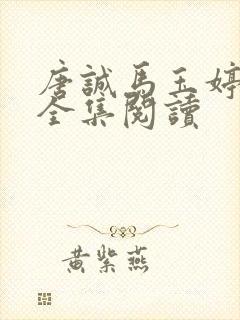 唐誠馬玉婷
全集閱讀
黃紫燕